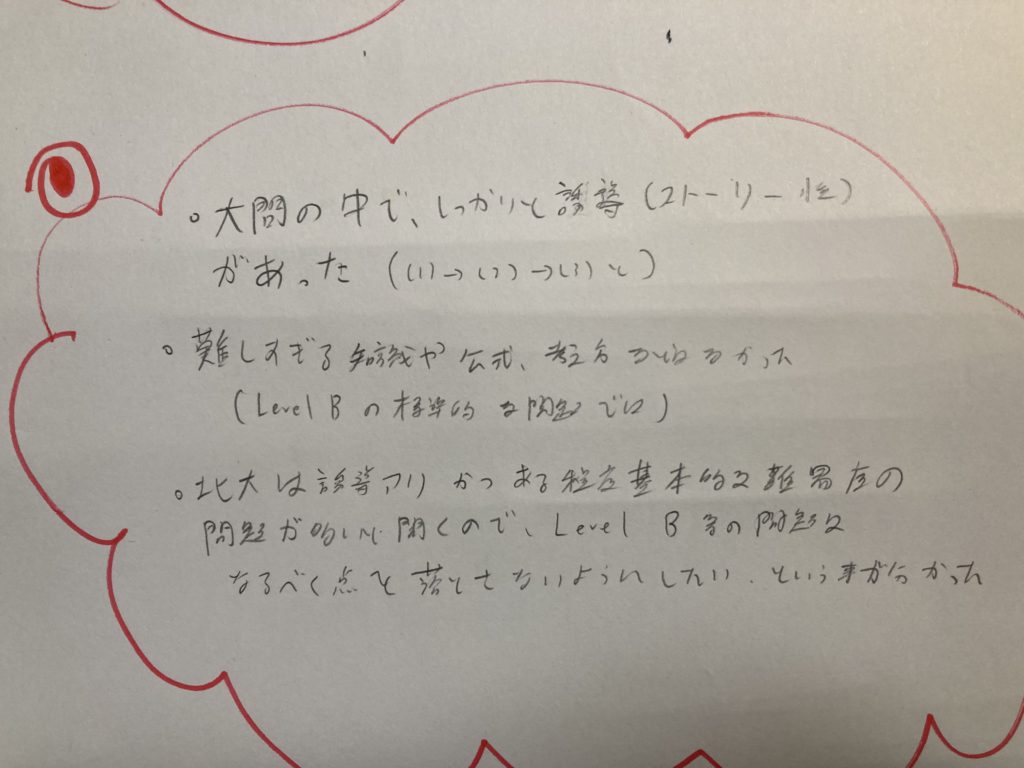 。大問の中で、しっかりと誘導(ストーリー性)
があった((1)→(2)→(3)と)
。難しすぎる知識や公式、考え方はなかった
(Level Bの標準的な問題では)
。北大は誘導アリかつある程度基本的な難易度の
問題が多いと聞くので、Level B等の問題は
なるべく点を落とさないようにしたい、という事が分かった